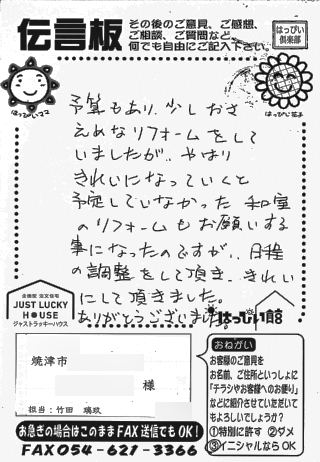 伝言板
その後のご意見、ご感想、
ご相談、ご質問など、
何でも自由にご記入下さい。
はっぴい
倶楽部
はっぴいママ
はっぴい花子
予算もあり、少しおさ
えめなリフォームをして
いましたが、やはり
きれいになっていくと
予定していなかった 和室
のリフォームもお願いする
事になったのですが、日程
の調整をして頂き、きれい
にして頂きました。
ありがとうございました。
企画型 注文住宅
JUST LUCKY
HOUSE
ジャストラッキーハウス
はっぴい館
焼津市
様
担当：竹田 璃玖
おねがい
お客様のご意見を
お名前、ご住所といっしょに
「チラシやお客様へのお便り」
などに紹介させていただいて
もよろしいでしょうか？
①特別に許す ②ダメ
③イニシャルならOK
お急ぎの場合はこのままFAX送信でもOK！
FAX054-621-3366